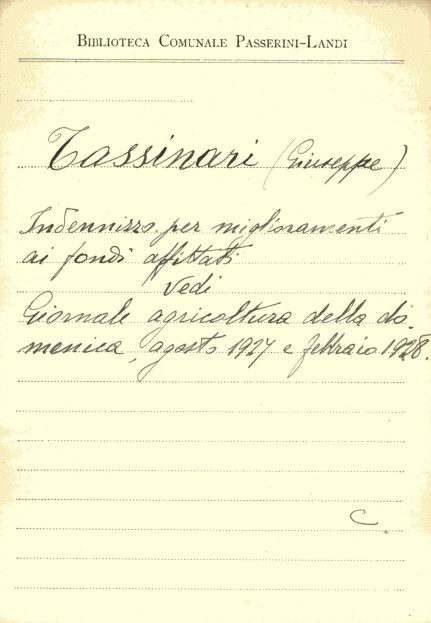 BIBLIOTECA COMUNALE PASSERINI-LANDI
Tassinari (Giuseppe)
Indennizzo per miglioramenti
ai fondi affittati
vedi
Giornale agricoltura della do-
menica, agosto 1927 e febbraio 1928.
C